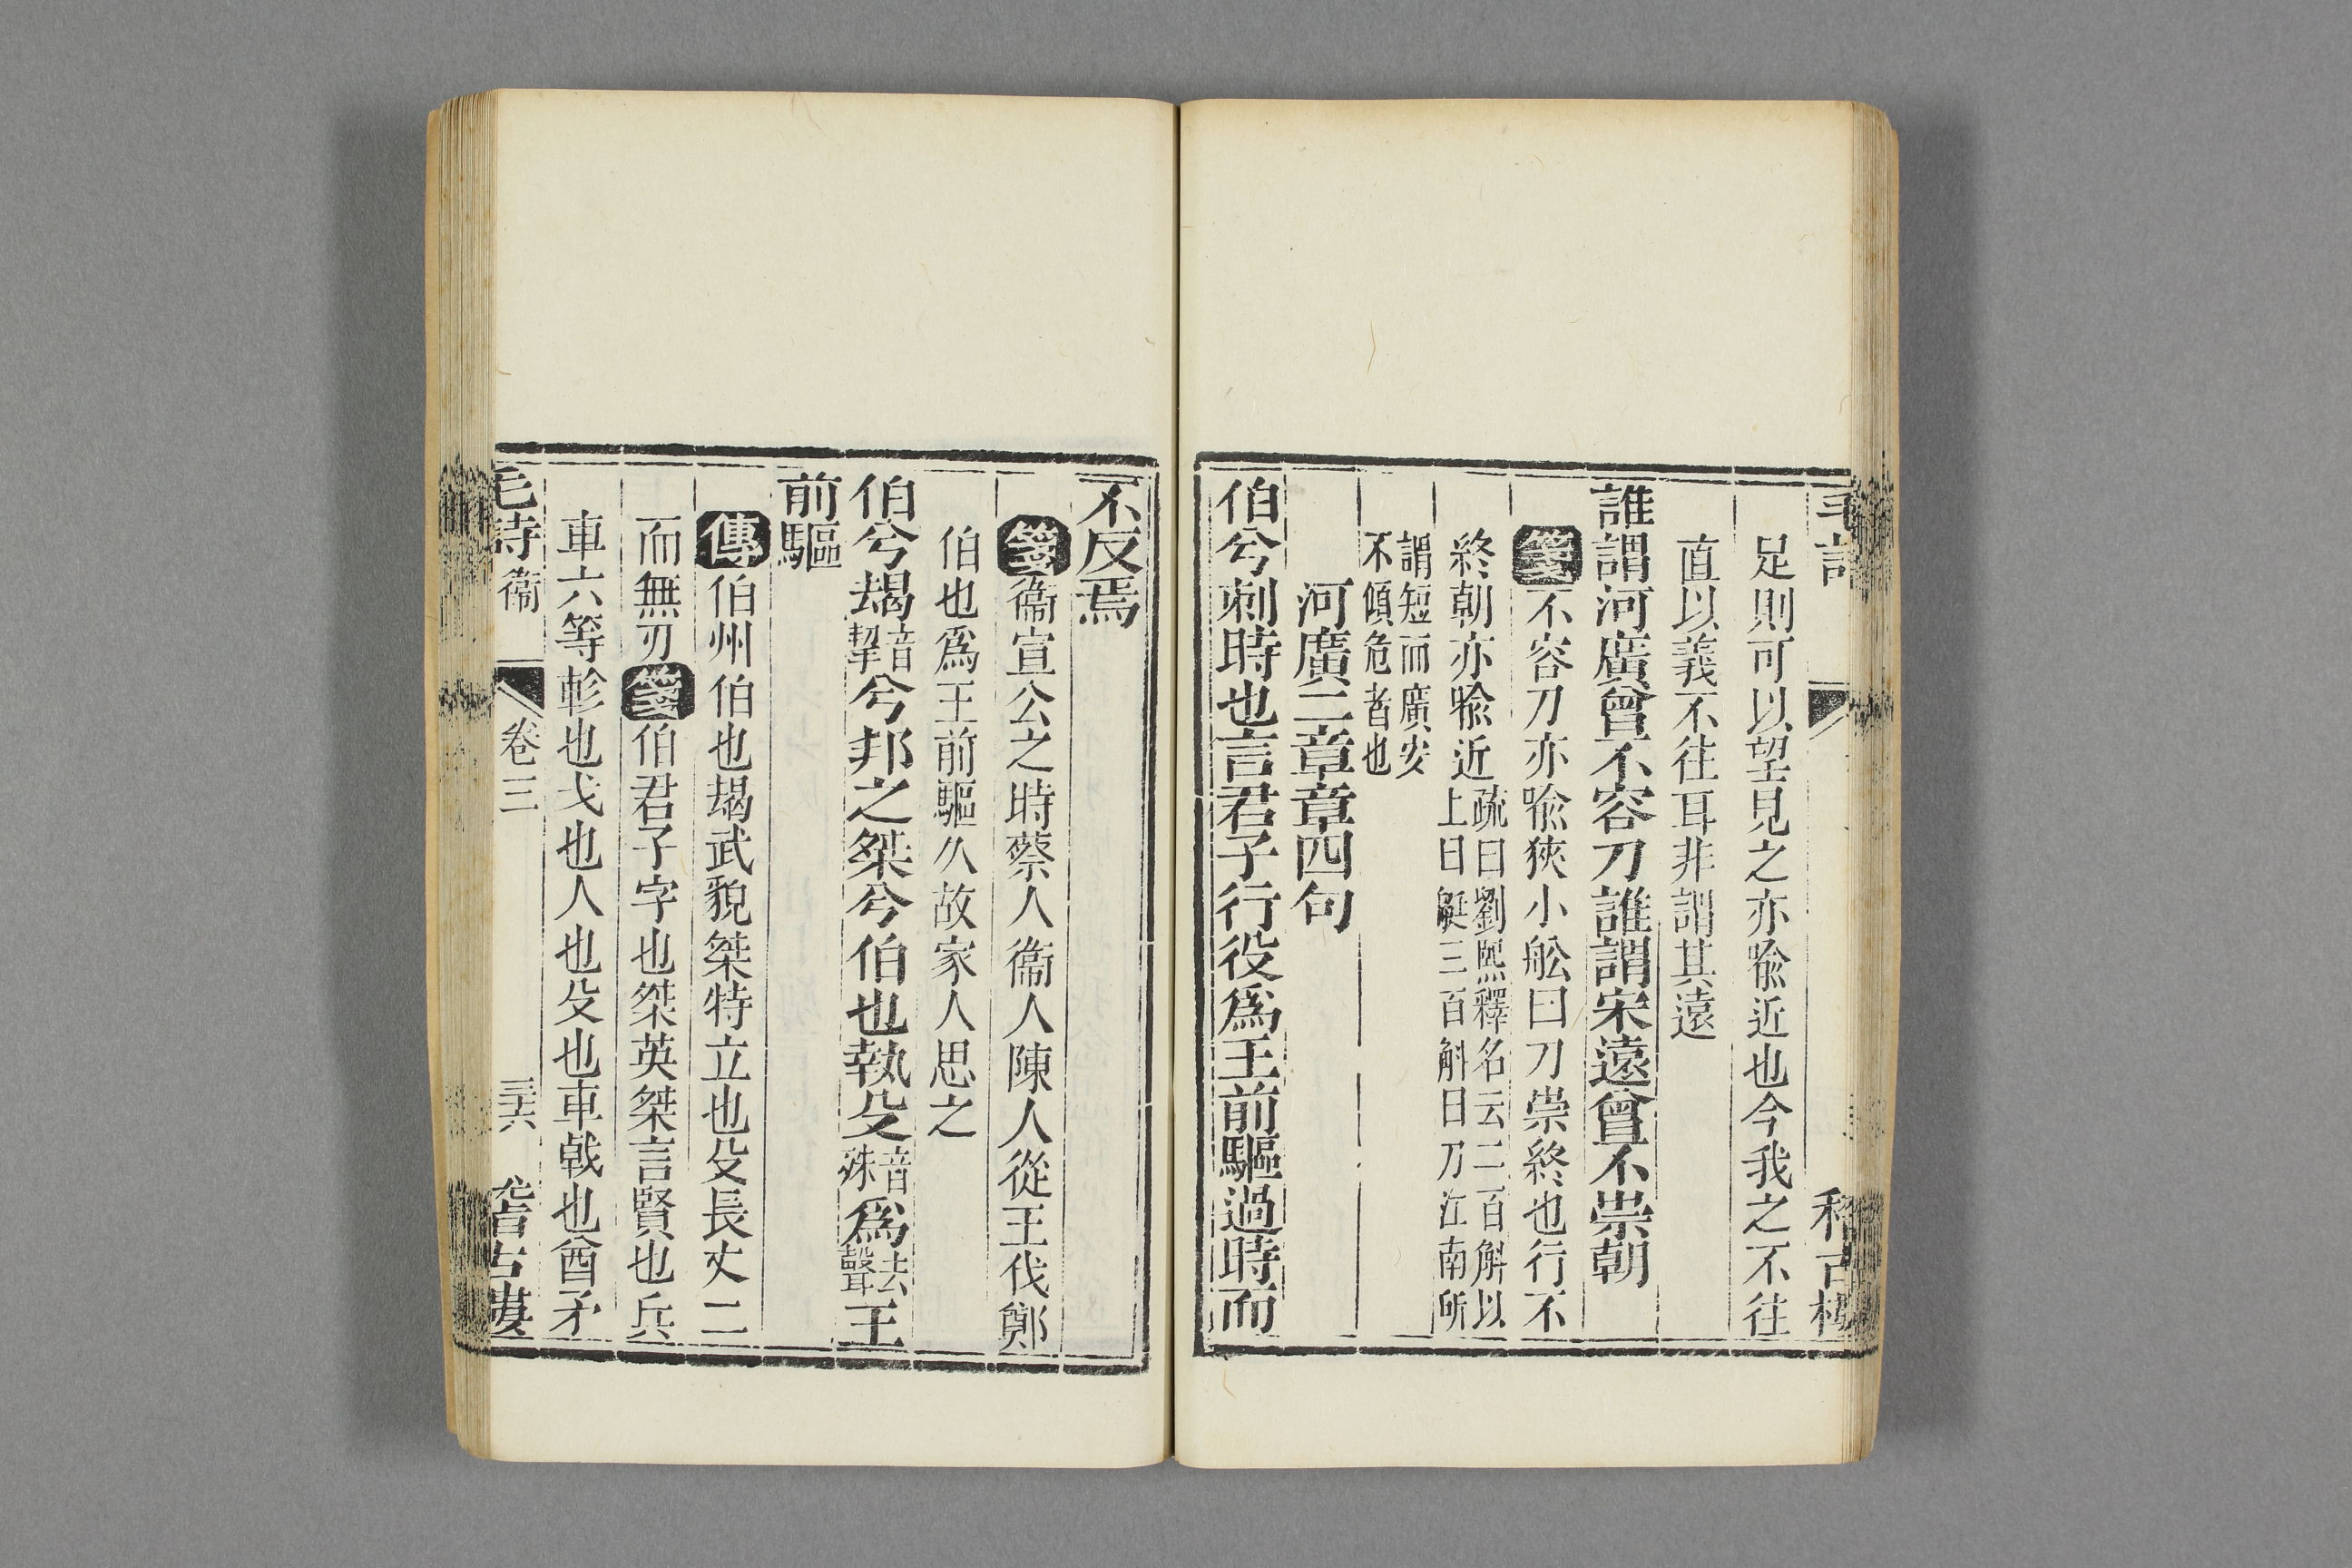 足則可以望見之亦喩近也今我之不往
直以義不往耳非謂其遠
誰謂河廣曾不容刀誰謂宋遠曾不崇朝
箋不容刀亦喩狹小舩曰刀崇終也行不
終朝亦喩近疏曰劉熙釋名云二百斛以上曰艇三百斛曰刀江南所
謂短而廣安不傾危者也
河廣二章章四句
伯兮刺時也言君子行役爲王前驅過時而
不反焉
箋衞宣公之時蔡人衞人陳人從王伐鄭
伯也爲王前驅乆故家人思之
伯兮朅音挈兮邦之桀兮伯也執殳音殊爲去聲王
前驅
傳伯州伯也朅武貌桀特立也殳長丈二
而無刃箋伯君子字也桀英桀言賢也兵
車六等軫也戈也人也殳也車戟也酋矛
毛詩 衞 卷三 三十六 稽古樓